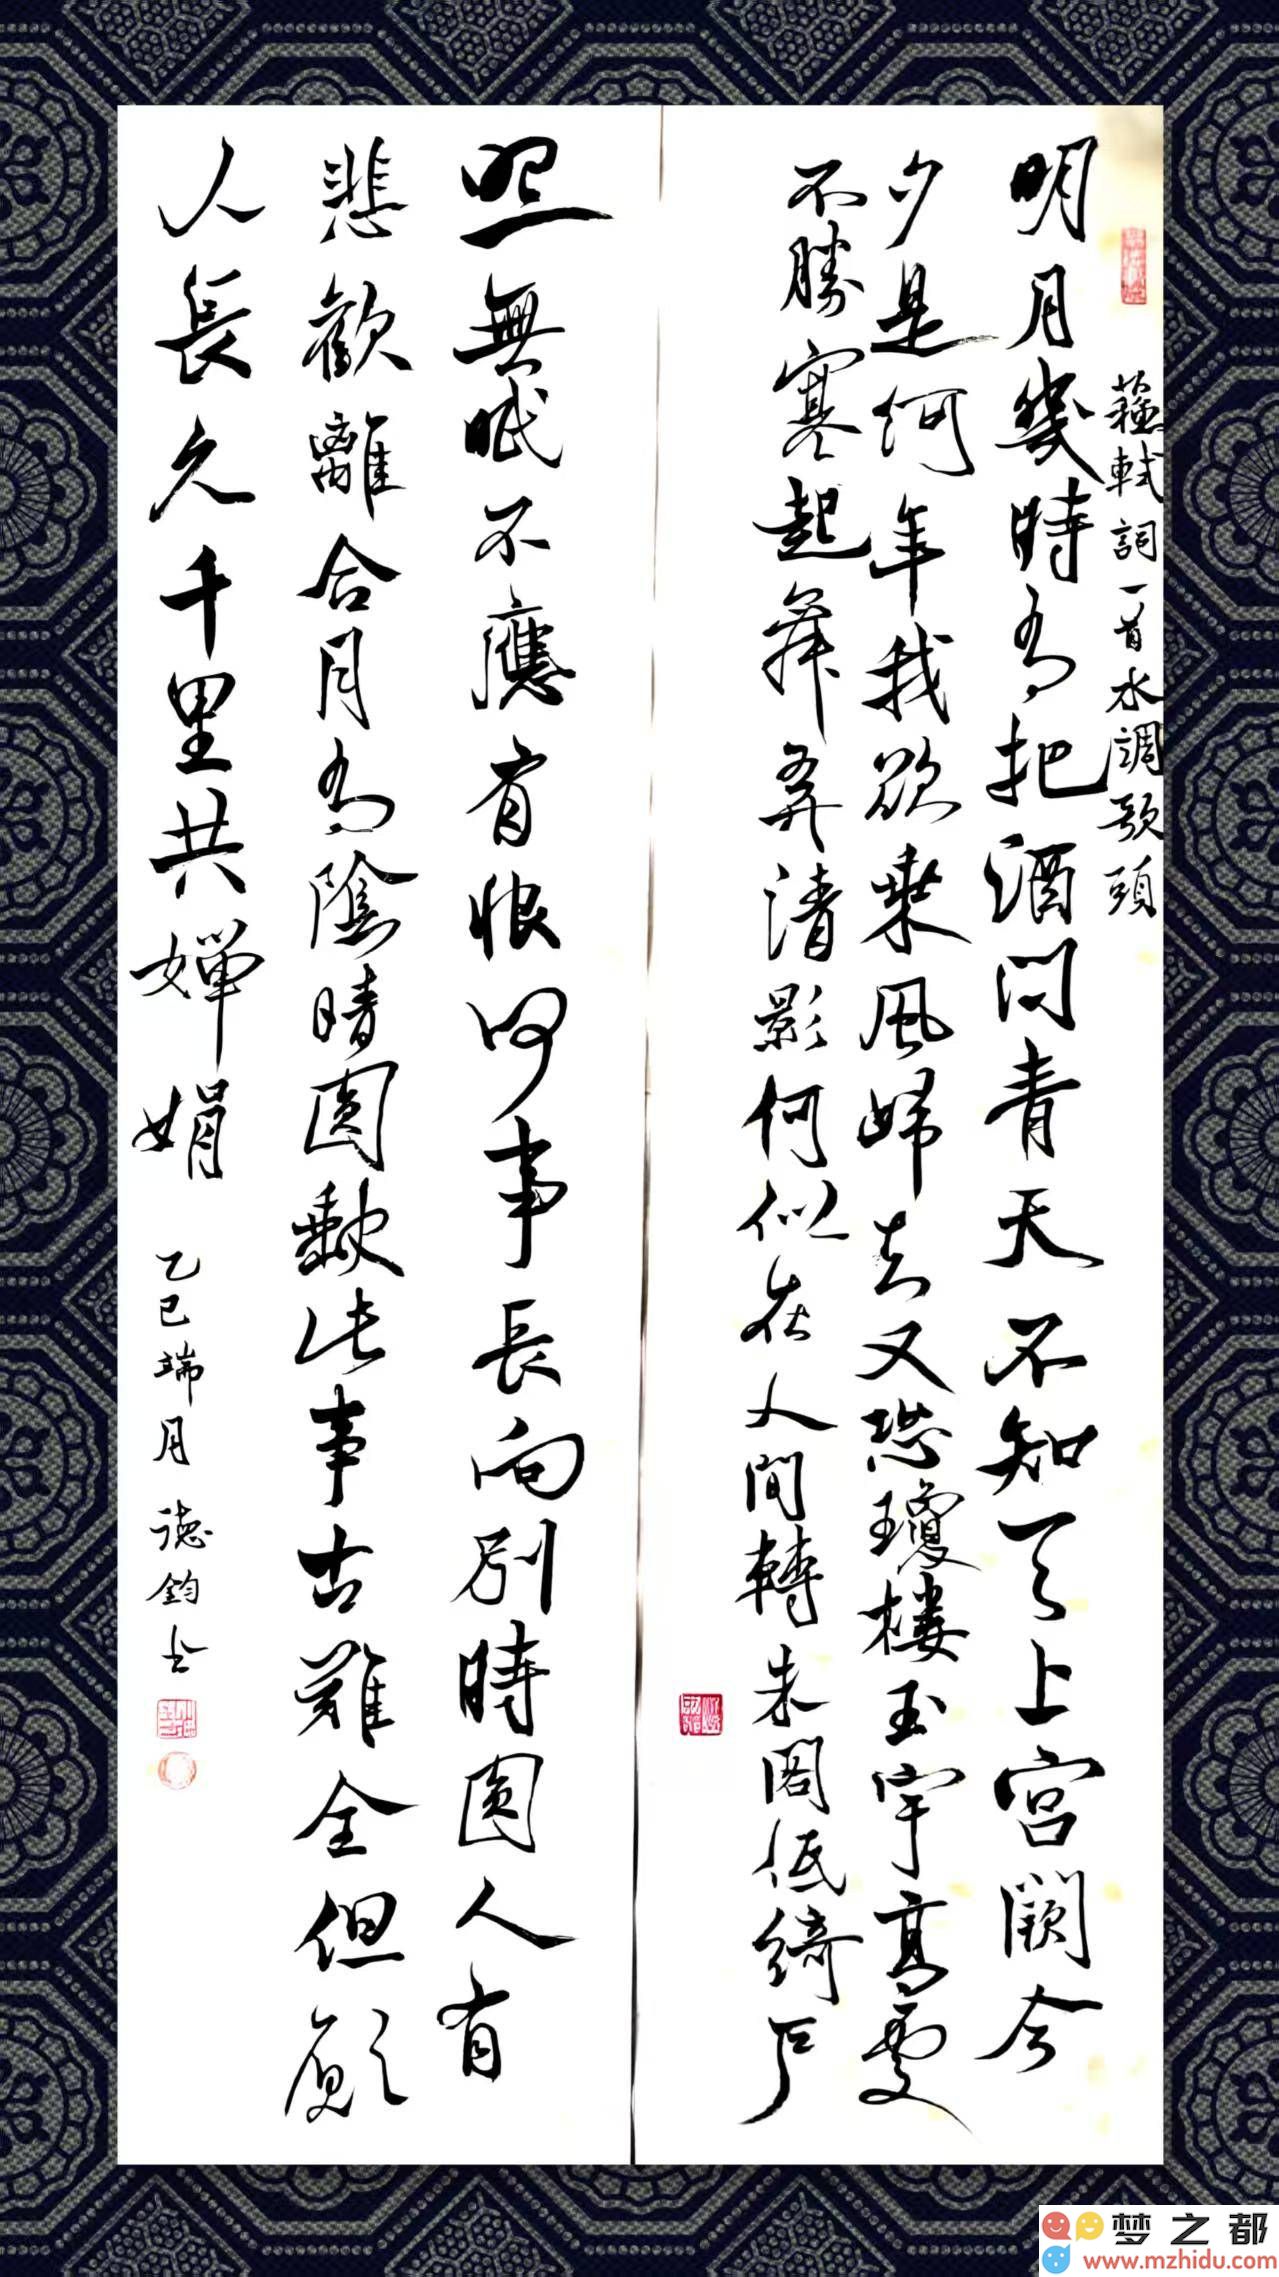 蘇軾詞一首水調歌頭
明月幾時有把酒問青天不知天上宮闕今
夕是何年我欲乘風歸去又恐瓊樓玉宇高處
不勝寒起舞弄清影何似在人間轉朱閣低綺户
照無眠不應有恨何事長向別時圓人有
悲歡離合月有陰晴圓缺此事古難全但願
人長久千里共嬋娟
乙巳端月德鈞书
梦之都
www.mzhidu.com